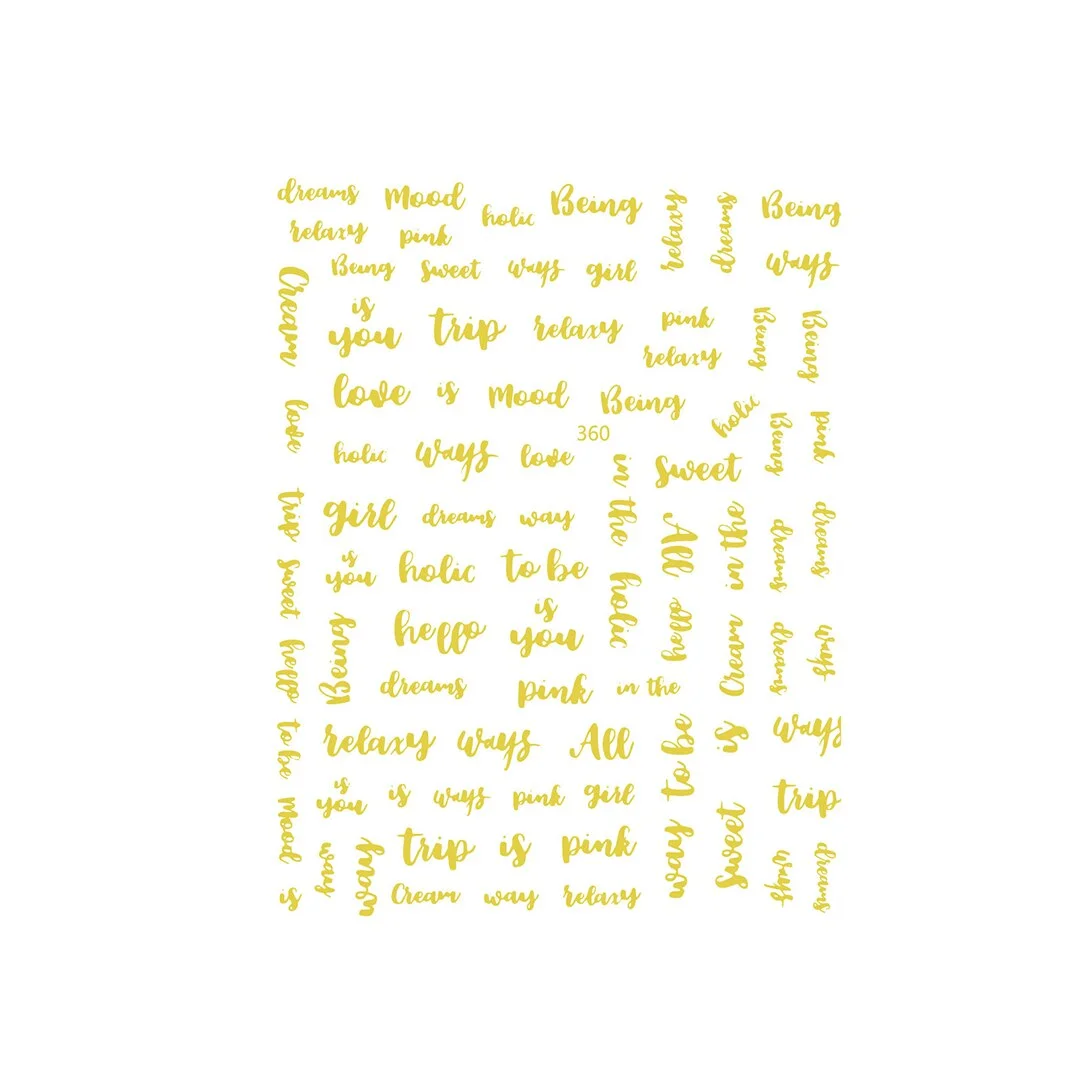 dreams Mood holic Being relaxy dreams Being
relaxy pink
Being sweet ways girl ways
Cream
is
you trip relaxy pink Being Being
relaxy
love is Mood Being holic
love 360 Being pink
holic ways love in the sweet
trip girl dreams way All in the dreams dreams
is
you holic to be
sweet holic hello Cream dreams ways
is
hello you
hello Being
dreams pink in the
relaxy ways All to be is ways
to be
is
you is ways pink girl trip
Mood way way trip is pink way sweet ways dreams
is Cream way relaxy